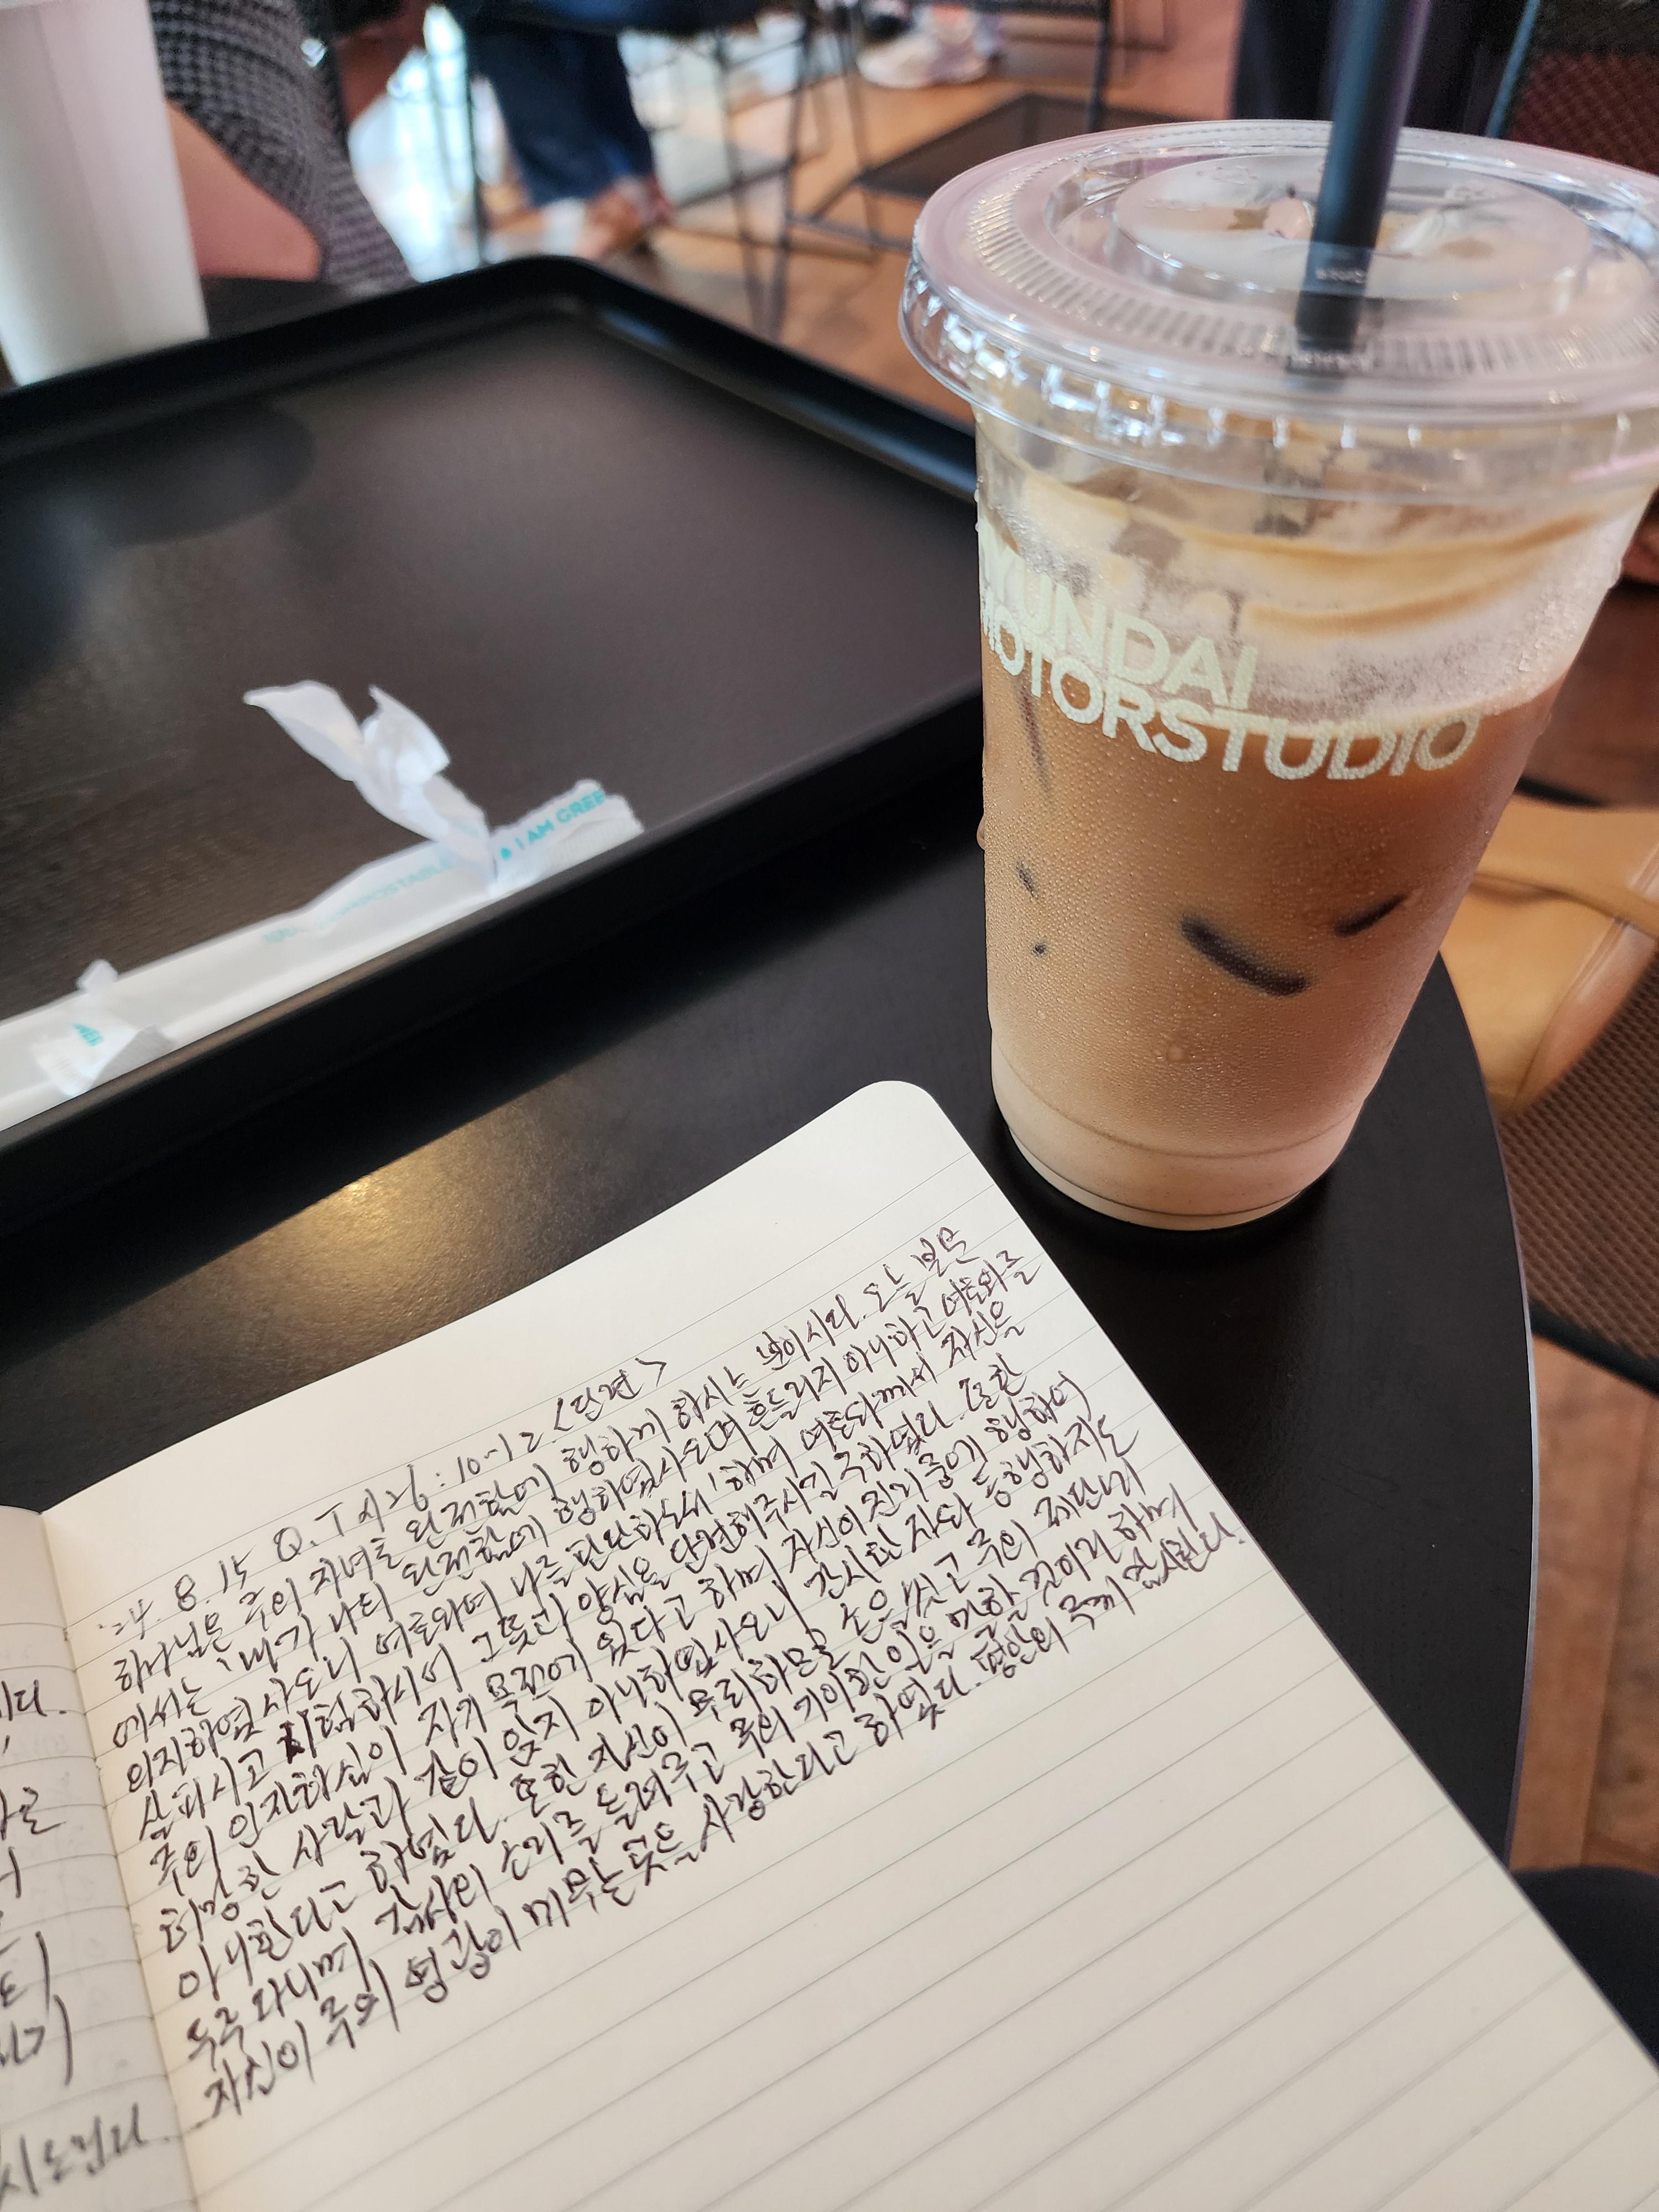 HYUNDAI
MOTORSTUDIO
I AM GREE
'24. 8. 15 Q.T 시26:10~12 <단련>
하나님은 주의 자녀를 완전함에 행하게 하시는 분이시다. 오늘 본문
에서는 '내가 나의 완전함에 행하였사오며 흔들리지 아니하고 여호와를
의지하였사오니 여호와여 나를 판단하소서' 하며 여호와께서 자신을
살피시고 시험하시어 그 뜻과 양심을 단련해주시길 구하였다. 또한
주의 인자하심이 자기 목전에 있다고 하며 자신이 진리 중에 행하여
허망한 사람과 같이 앉지 아니하였사오니 간사한 자와 동행하지도
아니한다고 하였다. 또한 자신이 무리하므로 손을 씻고 주의 제단내
두루 다니며 감사의 소리를 들려주고 주의 기이한 일을 말할 것이라 하며
자신이 주의 영광이 머무는 곳을 사랑한다고 하였다. 평안의 주께 감사한다.
시노라.